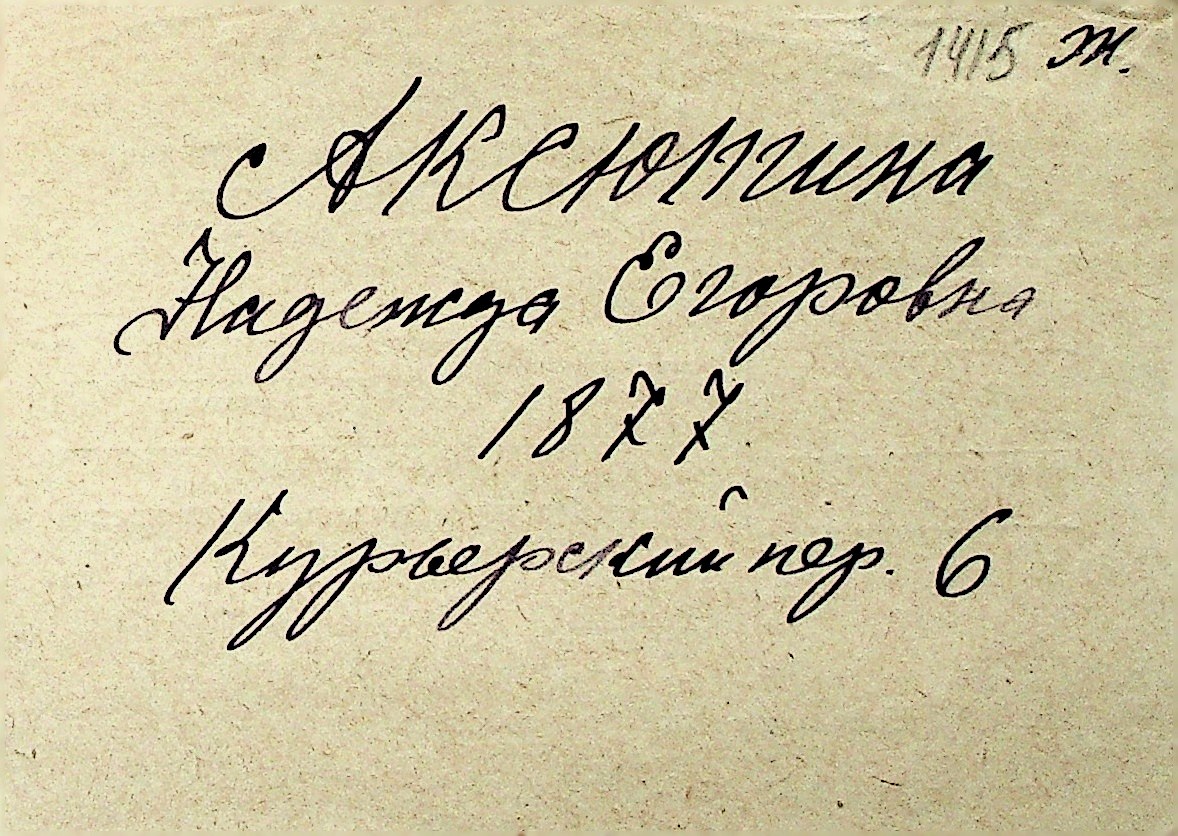 1415 ж.
Аксютина
Надежда Егоровна
1877
Курьерский пер. 6